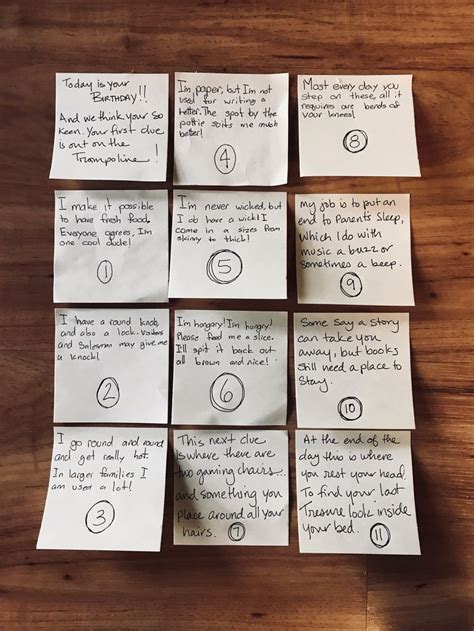 Today is your
BIRTHDAY!!
And we think your so
Keen. Your first clue
is out on the
Trampoline!
I make it possible
to have fresh food.
Everyone agrees, I'm
one cool dude!
1
I have a round knob
and also a lock. Visitors
and Salesman may give me
a knock!
2
I go round and round
and get really hot.
In larger families I
am used a lot!
3
I'm paper, but I'm not
used for writing a
letter. The spot by the
pottie suits me much
better!
4
I'm never wicked, but
I do have a wick! I
come in a sizes from
skinny to thick!
5
I'm hungary! I'm hungry!
Please feed me a slice.
I'll spit it back out
all brown and nice!
6
This next clue
is where there are
two gaming chairs
and something you
place around all your
hairs.
7
Most every day you
step on these, all it
requires are bends of
your knees!
8
my job is to put an
end to Parent's Sleep,
which I do with
music a buzz or
sometimes a beep.
9
Some say a story
can take you
away, but books
still need a place to
stay.
10
At the end of the
day this is where
you rest your head.
To find your last
Tresure look inside
your bed.
11